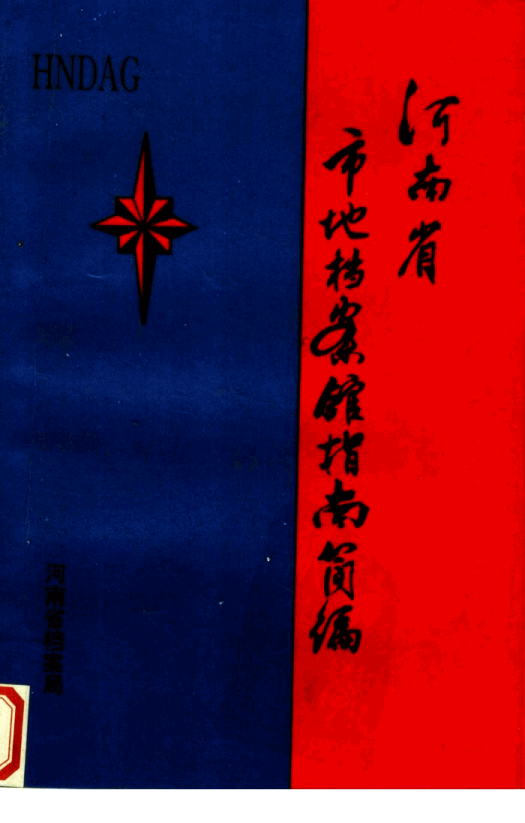 HNDAG
河南省
市地档案馆指南简编
河南省档案局